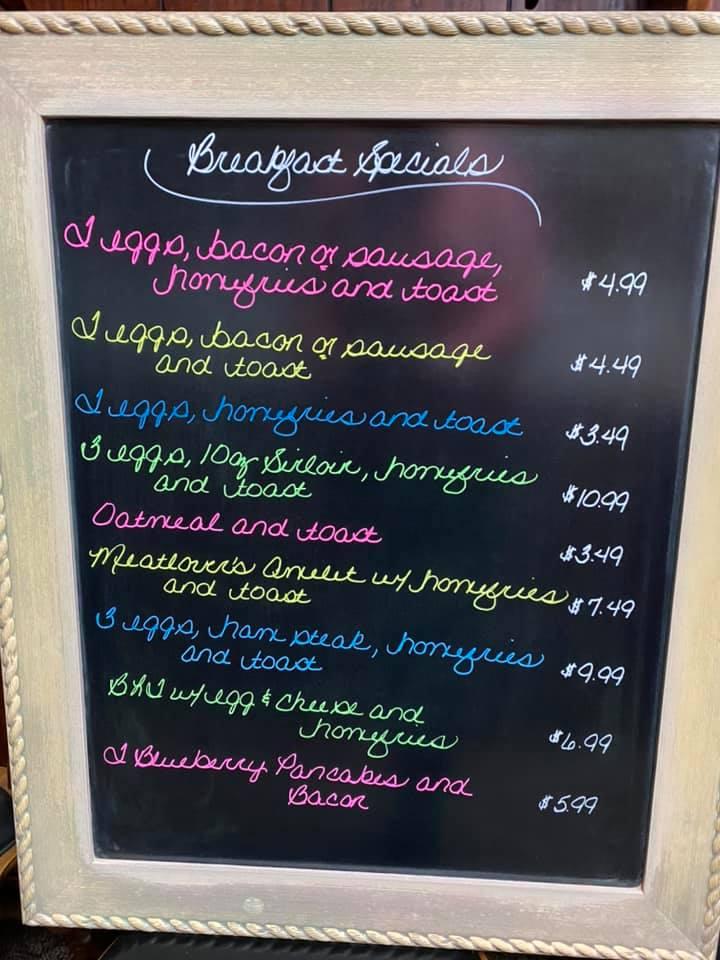 Breakfast Specials
2 eggs, bacon or sausage,
homefries and toast
$4.99
2 eggs, bacon or sausage
and toast
$4.49
2 eggs, homefries and toast
$3.49
3 eggs, 10oz Sirloin, homefries
and toast
$10.99
Oatmeal and toast
$3.49
Meatlover's Omelet w/ homefries
and toast
$7.49
3 eggs, ham steak, homefries
and toast
$9.99
BLT w/ egg & cheese and
homefries
$6.99
2 Blueberry Pancakes and
Bacon
$5.99